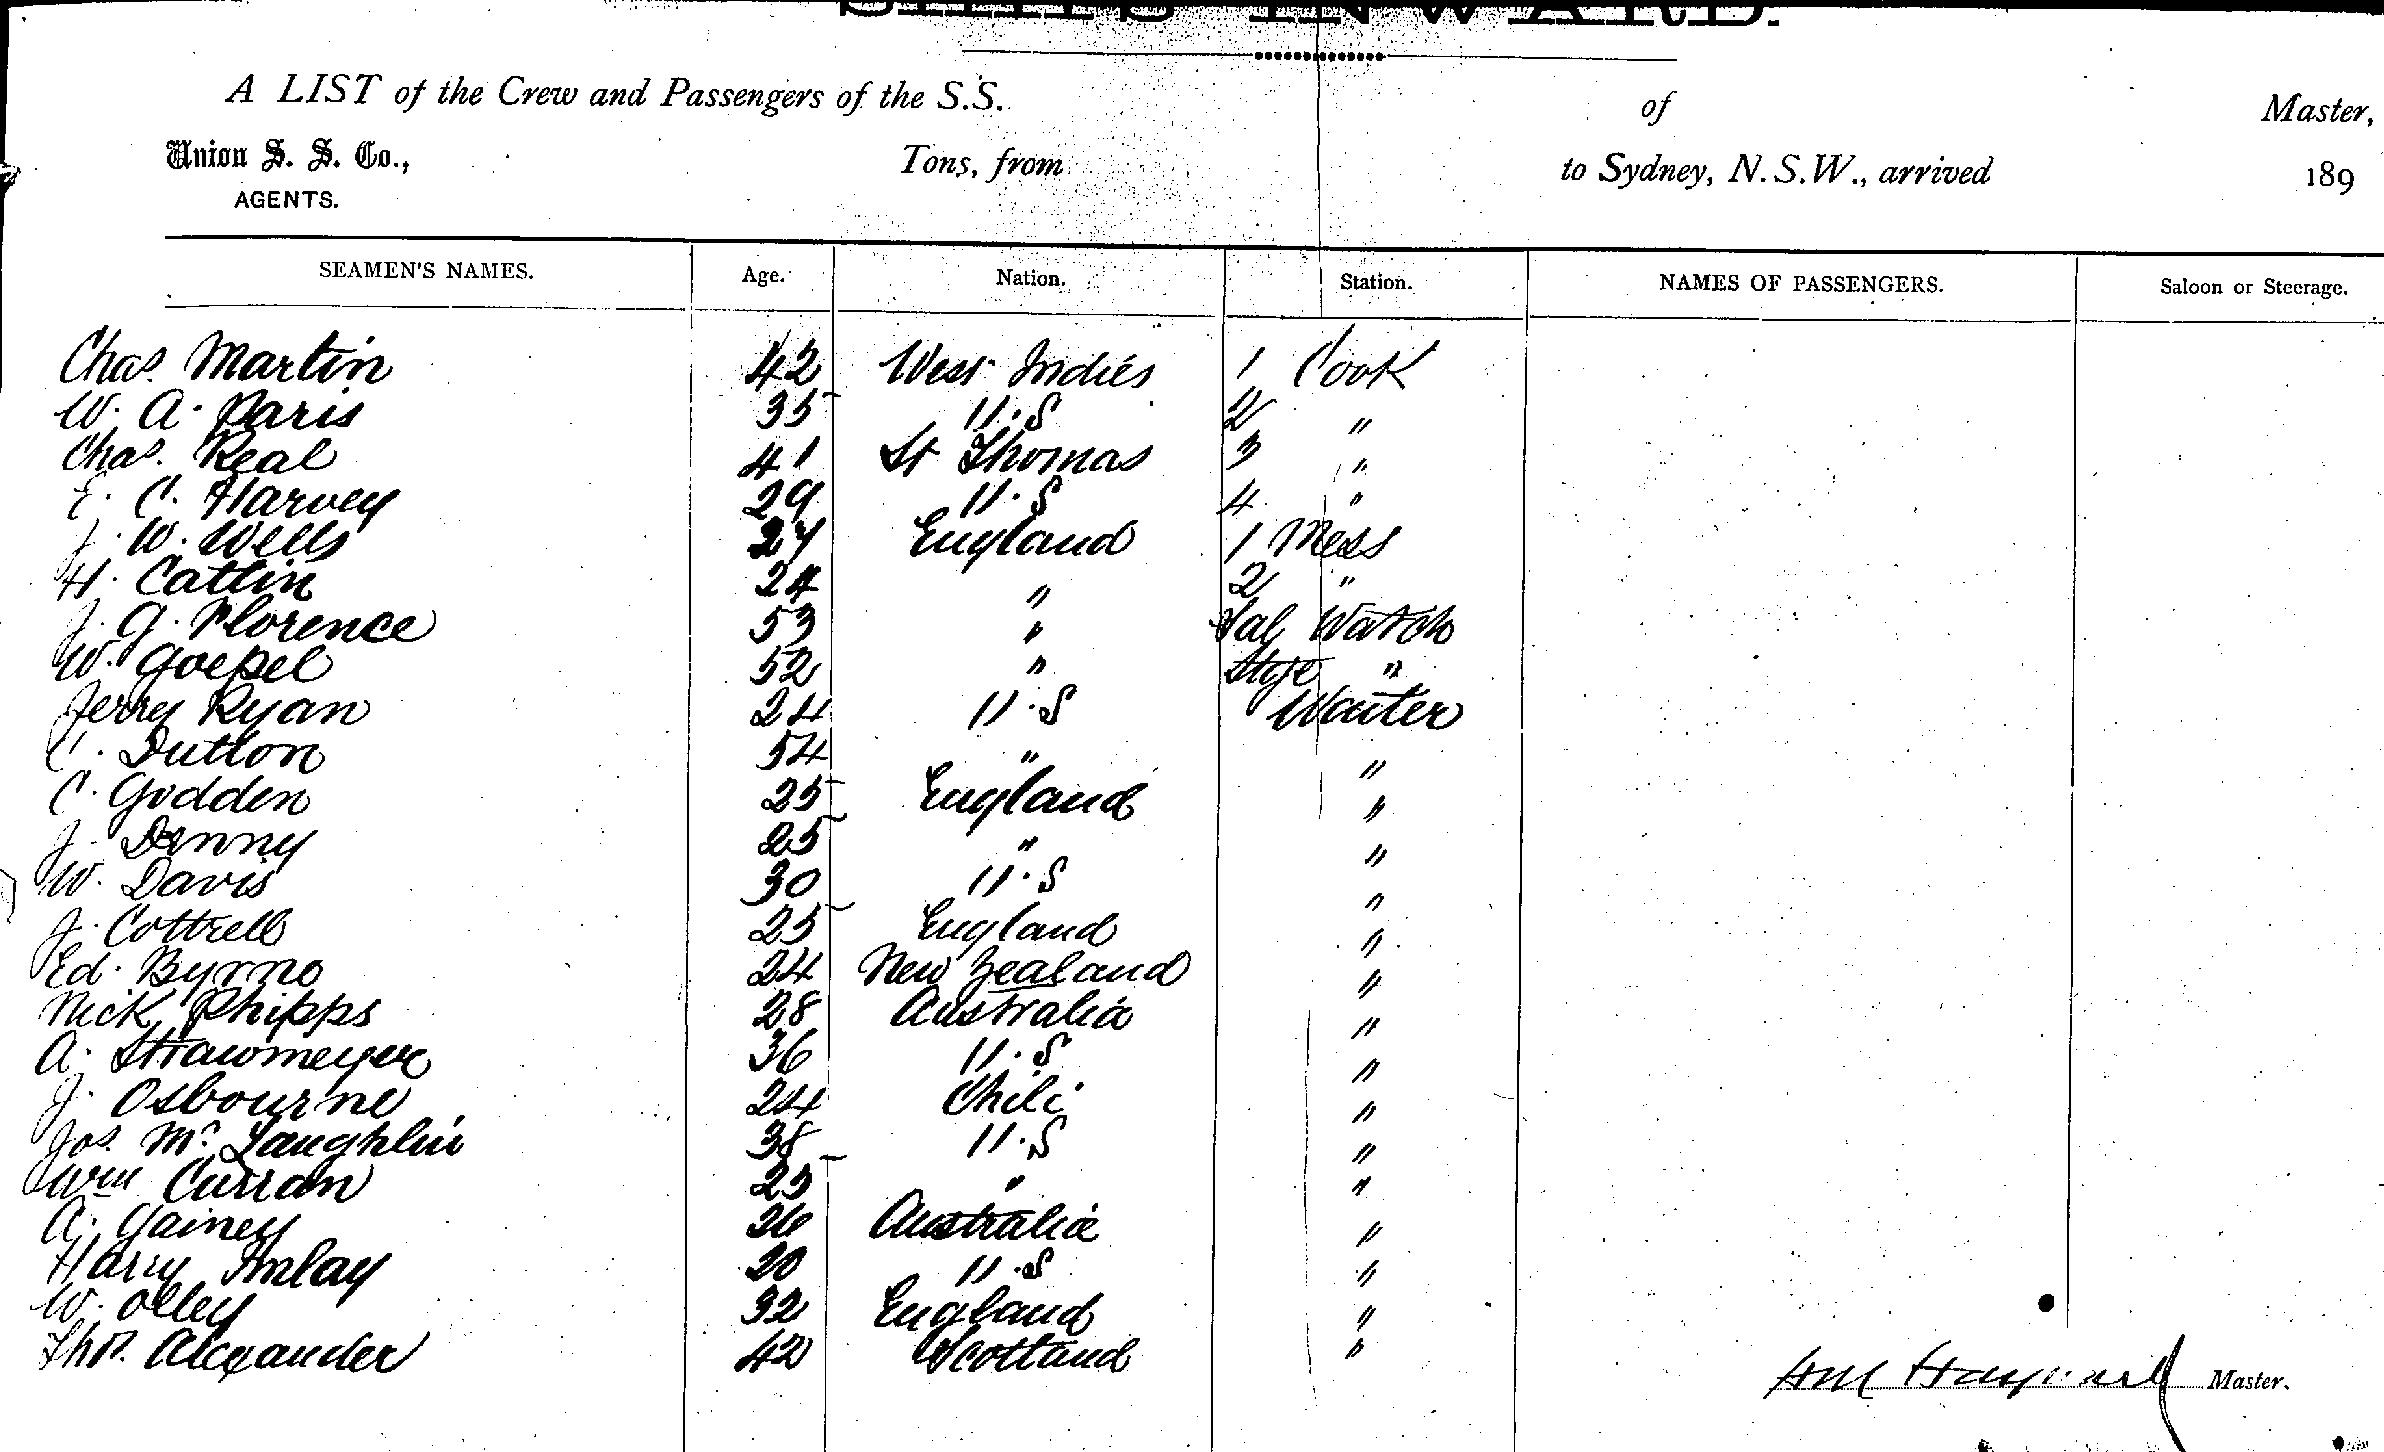 A LIST of the Crew and Passengers of the S.S. of Master,
Union S. S. Co., Tons, from to Sydney, N.S.W., arrived 189
AGENTS.
SEAMEN'S NAMES. Age. Nation. Station. NAMES OF PASSENGERS. Saloon or Steerage.
Chas. Martin 42 West Indies 1 Cook
W. A. Paris 35 U.S 2 "
Chas. Real 41 St Thomas 3 "
E. C. Harvey 29 U.S 4 "
J. W. Wells 27 England 1 Mess
H. Cattin 24 " 2 "
J. G. Florence 53 " Sal Watch
W. Goepel 52 " Stge "
Jerry Ryan 24 U.S Waiter
C. Dutton 54 " "
C. Godden 25 England "
J. Denny 25 " "
W. Davis 30 U.S "
J. Cottrell 25 England "
Ed. Byrne 24 New Zealand "
Nick Phipps 28 Australia "
A. Strawmeyer 36 U.S "
J. Osbourne 24 Chili "
Jos. Mc Laughlin 38 U.S "
Wm Curran 25 " "
A. Gainey 26 Australia "
Harry Imlay 20 U.S "
W. Olley 32 England "
Thos. Alexander 42 Scotland "
Hayward Master.